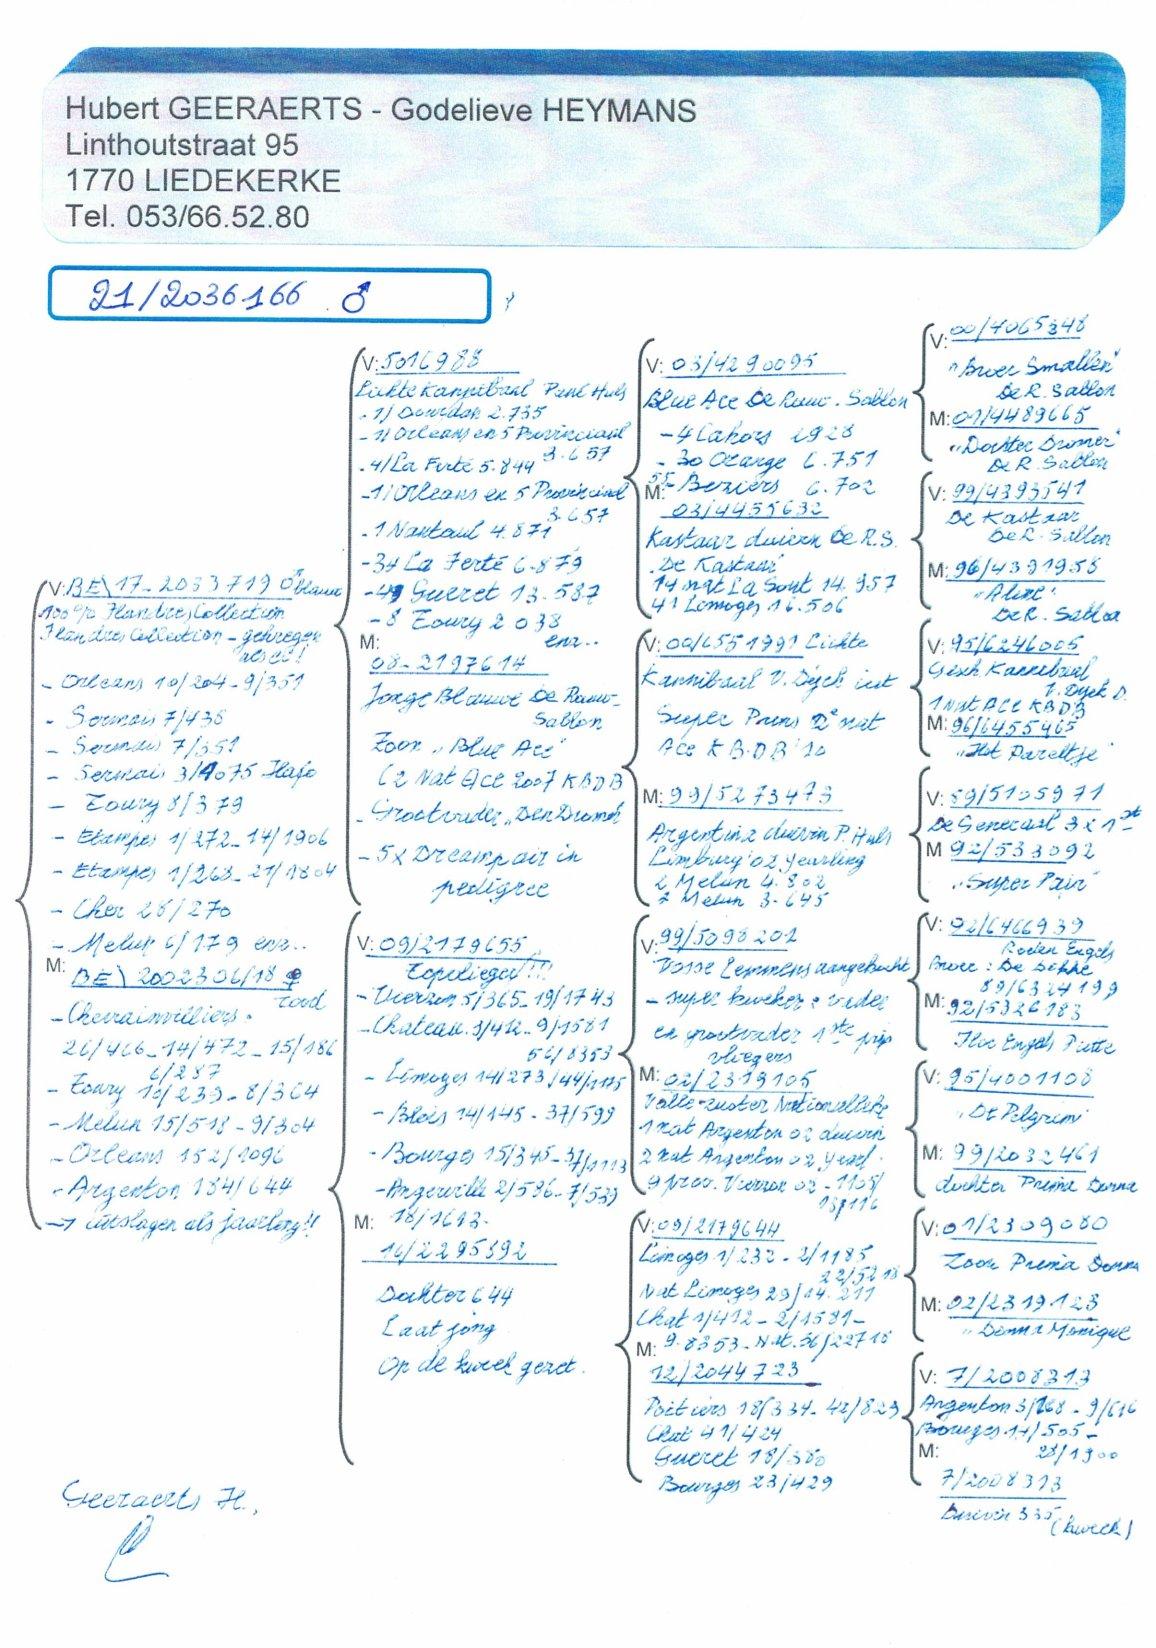 Hubert GEERAERTS - Godelieve HEYMANS
Linthoutstraat 95
1770 LIEDEKERKE
Tel. 053/66.52.80
21/2036166 ♂
V: BE\17-2033719 ♂ blauw
100% Flandres Collection
Flandres Collection - gekregen
als ei!
- Orleans 10/204-9/351
- Sermais 7/438
- Sermais 7/351
- Sermais 3/1075 Hafo
- Toury 8/379
- Etampes 1/272-14/1906
- Etampes 1/268-21/1804
- Cher 28/270
- Melun 6/179 enz..
M: BE\2002306/18 ♀
- Chevrainvilliers.
26/466-14/472-15/186
6/287
- Toury 10/239-8/364
- Melun 15/518-9/304
- Orleans 152/1096
- Argenton 184/644
→ uitslagen als jaarling!!
V: 5016988
Lichte Kannibaal Paul Huls
- 1/ Dourdan 2.735
- 1/ Orleans en 5 Provinciaal
3.657
- 4/La Ferté 5.844
- 1/Orleans en 5 Provinciaal
3.657
- 1 Nanteuil 4.871
- 34 La Ferté 6.879
- 49 Gueret 13.587
- 8 Toury 2038
enz..
M:
08-2197614
Jonge Blauwe De Rauw-
Sablon
Zoon "Blue Ace"
(2 Nat Ace 2007 KBDB
- Grootvader "Den Dromer
- 5x Dreampair in
pedigree
V: 09/2179655
Topvlieger!!!
- Vierzon 5/365-19/1743
- Chateau. 3/412-9/1581
56/8353
- Limoges 14/273/44/1175
- Blois 14/145-37/599
- Bourges 15/345-37/1113
- Angerville 2/586-7/539
M: 18/1612-
16/2295392
Dochter 644
Laat jong
Op de kweek gezet.
V: 03/4290095
Blue Ace De Rauw-Sablon
- 4 Cahors 1928
- 30 Orange 6.751
55 Beziers 6.702
M:
03/4455632
Kastaar duivin De R.S.
"De Kastaar"
14 nat La Sout 14.957
41 Limoges 16.506
V: 00/6551991 Lichte
Kannibaal V. Dyck uit
Super Prins 2e nat
Ace KBDB '10
M: 99/5273473
Argentina duivin P. Huls
Limburg '02 yearling
2 Melun 4.802
7 Melun 3.645
V: 99/5098201
Vosse Lemmens aangekocht
- super kweker: vader
en grootvader 1ste prijs
vliegers
M: 02/2319105
Volle zuster Nationallike
1 nat Argenton 02 duivin
2 nat Argenton 02 yearl.
9 prov. Vierzon 02-1105/
V: 09/2179644
Limoges 1/232-2/1185
22/5218
Nat Limoges 29/14.211
Chat 1/412-2/1581-
M: 9.8353-Nat.56/22718
12/2044723
Poitiers 18/334-42/829
Chat 41/424
Gueret 18/380
Bourges 23/429
V: 00/4065348
"Broer Smallen"
De R. Sablon
M: 01/4489665
"Dochter Dromer"
De R. Sablon
V: 99/4393541
De Kastaar
De R. Sablon
M: 96/4391958
"Aline"
De R. Sablon
V: 95/6246005
Gesch Kannibaal
V. Dyck D.
1 Nat Ace KBDB
M: 96/6455465
"Het Pareltje"
V: 89/5105971
De Generaal 3x1ste
M 92/533092
"Super Pair"
V: 02/6466939
Roden Engels
Broer: De Dikke
89/6324199
M: 92/5326183
Floc Engels Putte
V: 95/4001108
"De Pelgrim"
M: 99/2032461
dochter Prima Donna
V: 01/2309080
Zoon Prima Donna
M: 02/2319123
"Donna Monique
V: 7/2008313
Argenton 3/168-9/616
Bourges 17/505-
28/1900
M:
7/2008313
Duivin 335
(kweek)
Geeraerts H.,